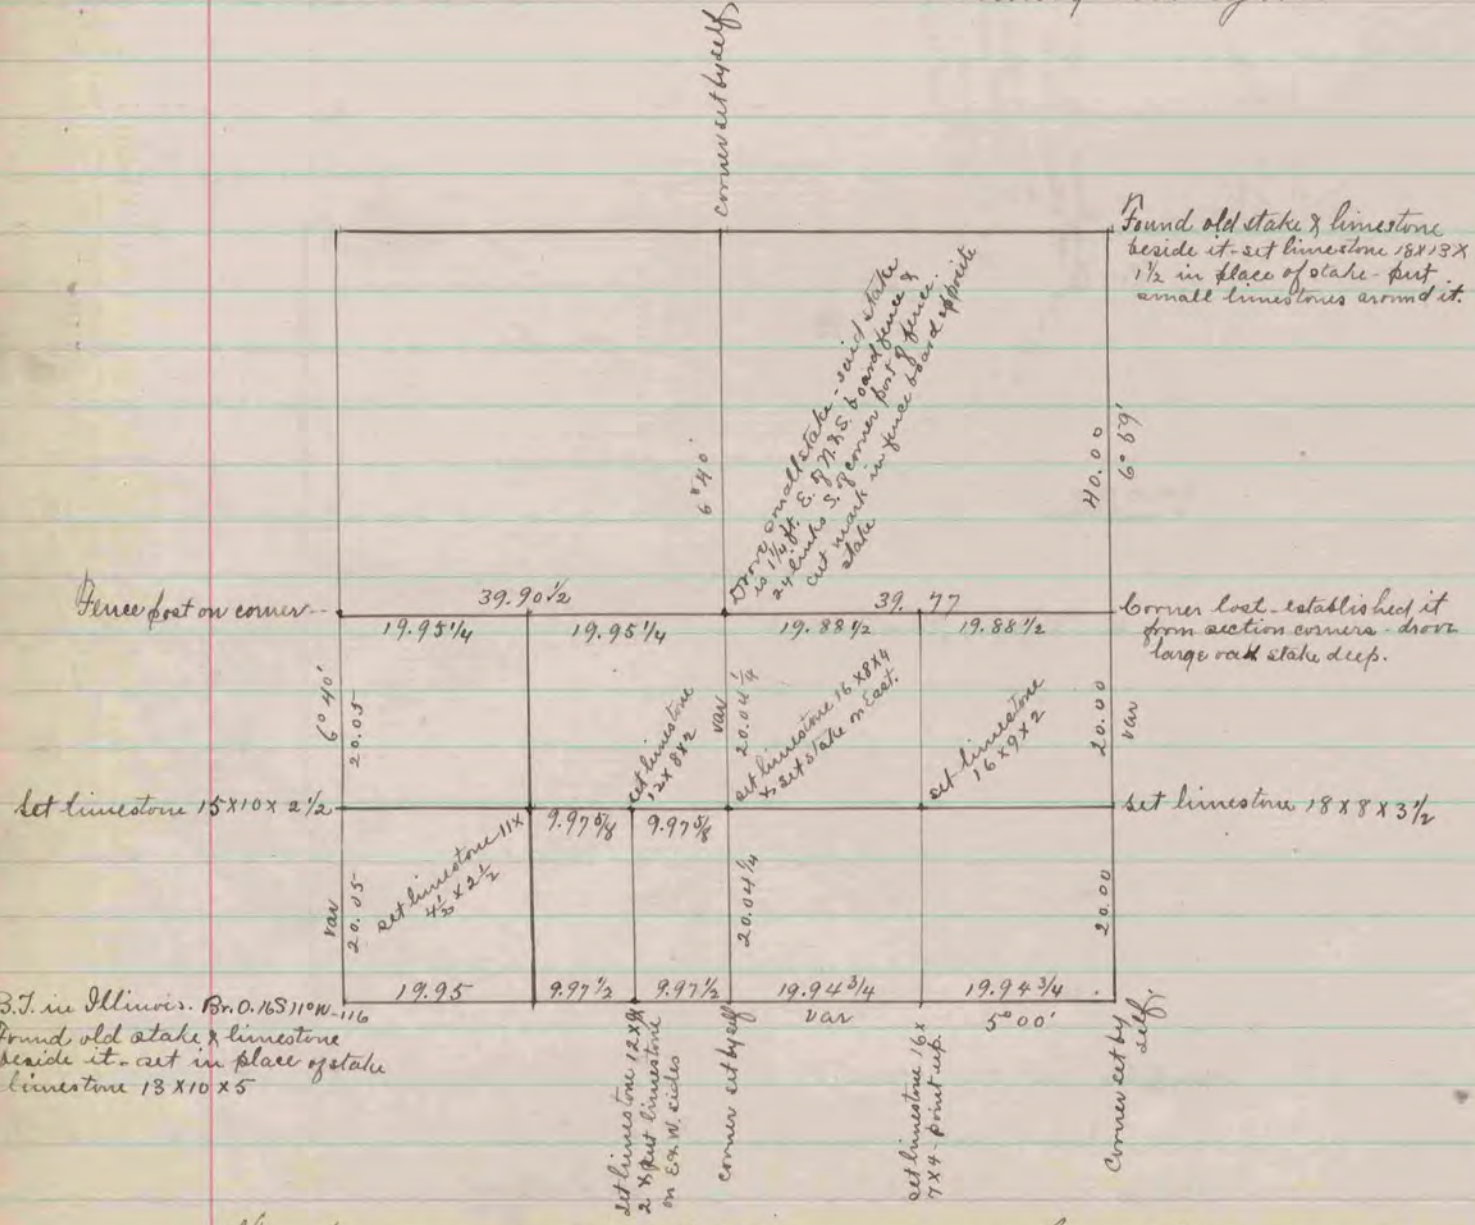 corner set by self
Found old stake & limestone
beside it - set limestone 18X13X
1½ in place of stake - put
small limestones around it.
Drove small stake - said stake
is 1¼ ft. E. of N. & S. board fence &
24 links S. of corner post of fence.
cut mark in fence board opposite
stake
6° 40'
40.00
6° 59'
Fence post on corner
39.90½
39.77
Corner lost - established it
from section corners - drove
large oak stake deep.
19.95¼
19.95¼
19.88½
19.88½
6° 40'
20.05
set limestone
12X8X2
var
20.04¼
set limestone 16X8X4
& set stake on East.
set limestone
16X9X2
20.00
var
Set limestone 15X10X2½
9.97⅝
9.97⅝
set limestone 18X8X3½
set limestone 11X
4½X2½
var
20.05
20.04¼
20.00
19.95
9.97½
9.97½
19.94¾
19.94¾
B.T. in Illinois. Br.O. 16 S11°W-116
Found old stake & limestone
beside it - set in place of stake
limestone 13X10X5
var
5°00'
set limestone 12X9X
2 & put limestone
on E & W. sides
corner set by self
set limestone 16X
7X4 - point up.
Corner set by
self.